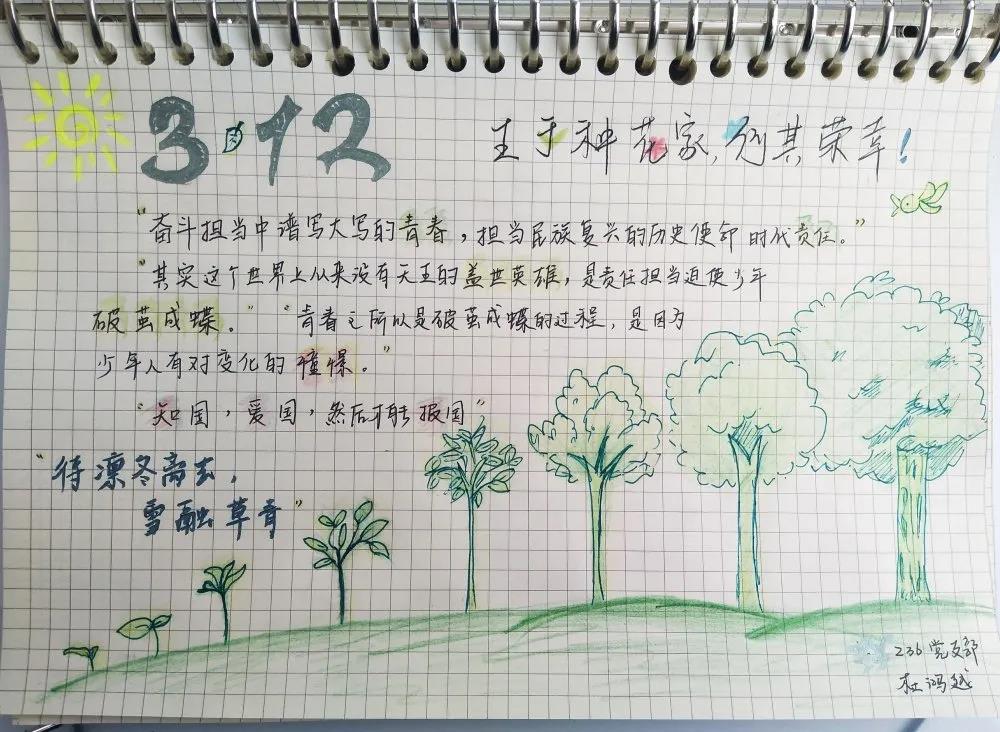 3·12
生于种花家，何其荣幸！
“奋斗担当中谱写大写的青春，担当民族复兴的历史使命时代责任。”
“其实这个世界上从来没有天生的盖世英雄，是责任担当迫使少年
破茧成蝶。”“青春之所以是破茧成蝶的过程，是因为
少年人有对变化的憧憬。”
“知国，爱国，然后才能报国”
“待凛冬离去，
雪融草青”
236党支部
杜鸿越